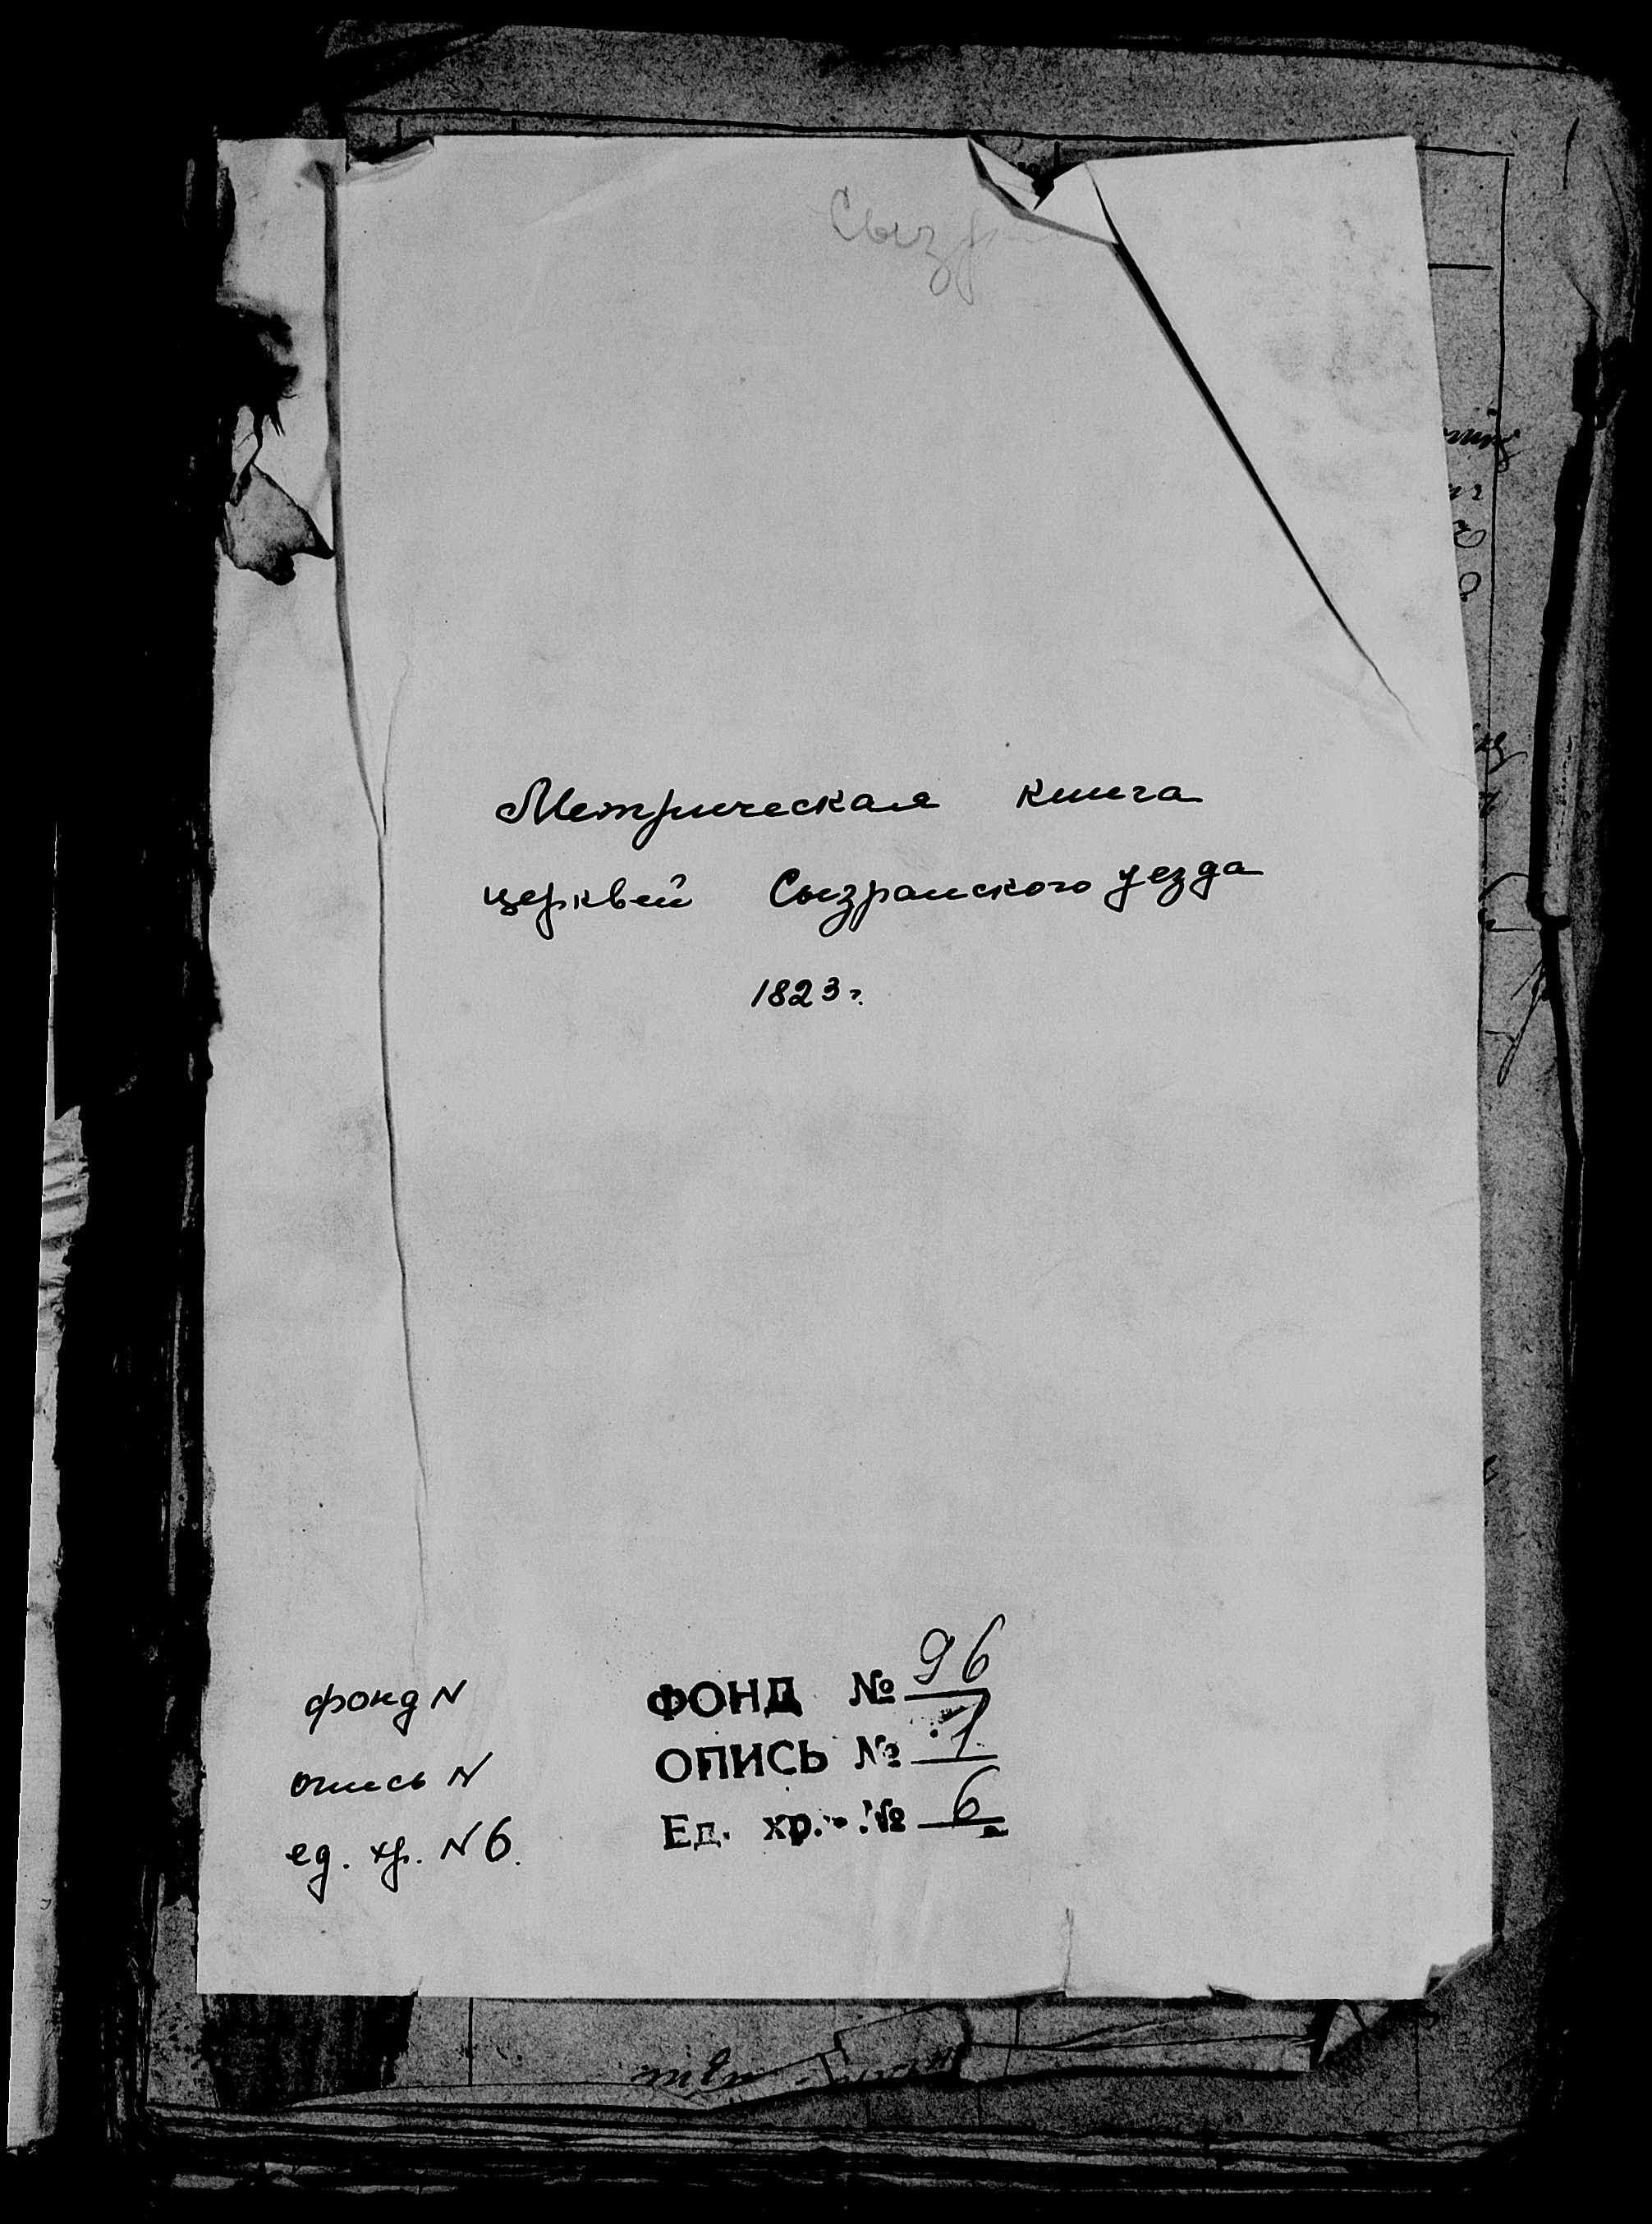 Сызр
Метрическая книга
церквей Сызранского уезда
1823 г.
фонд N
опись N
ед. хр. N 6.
ФОНД № 96
ОПИСЬ № 1
Ед. хр. № 6